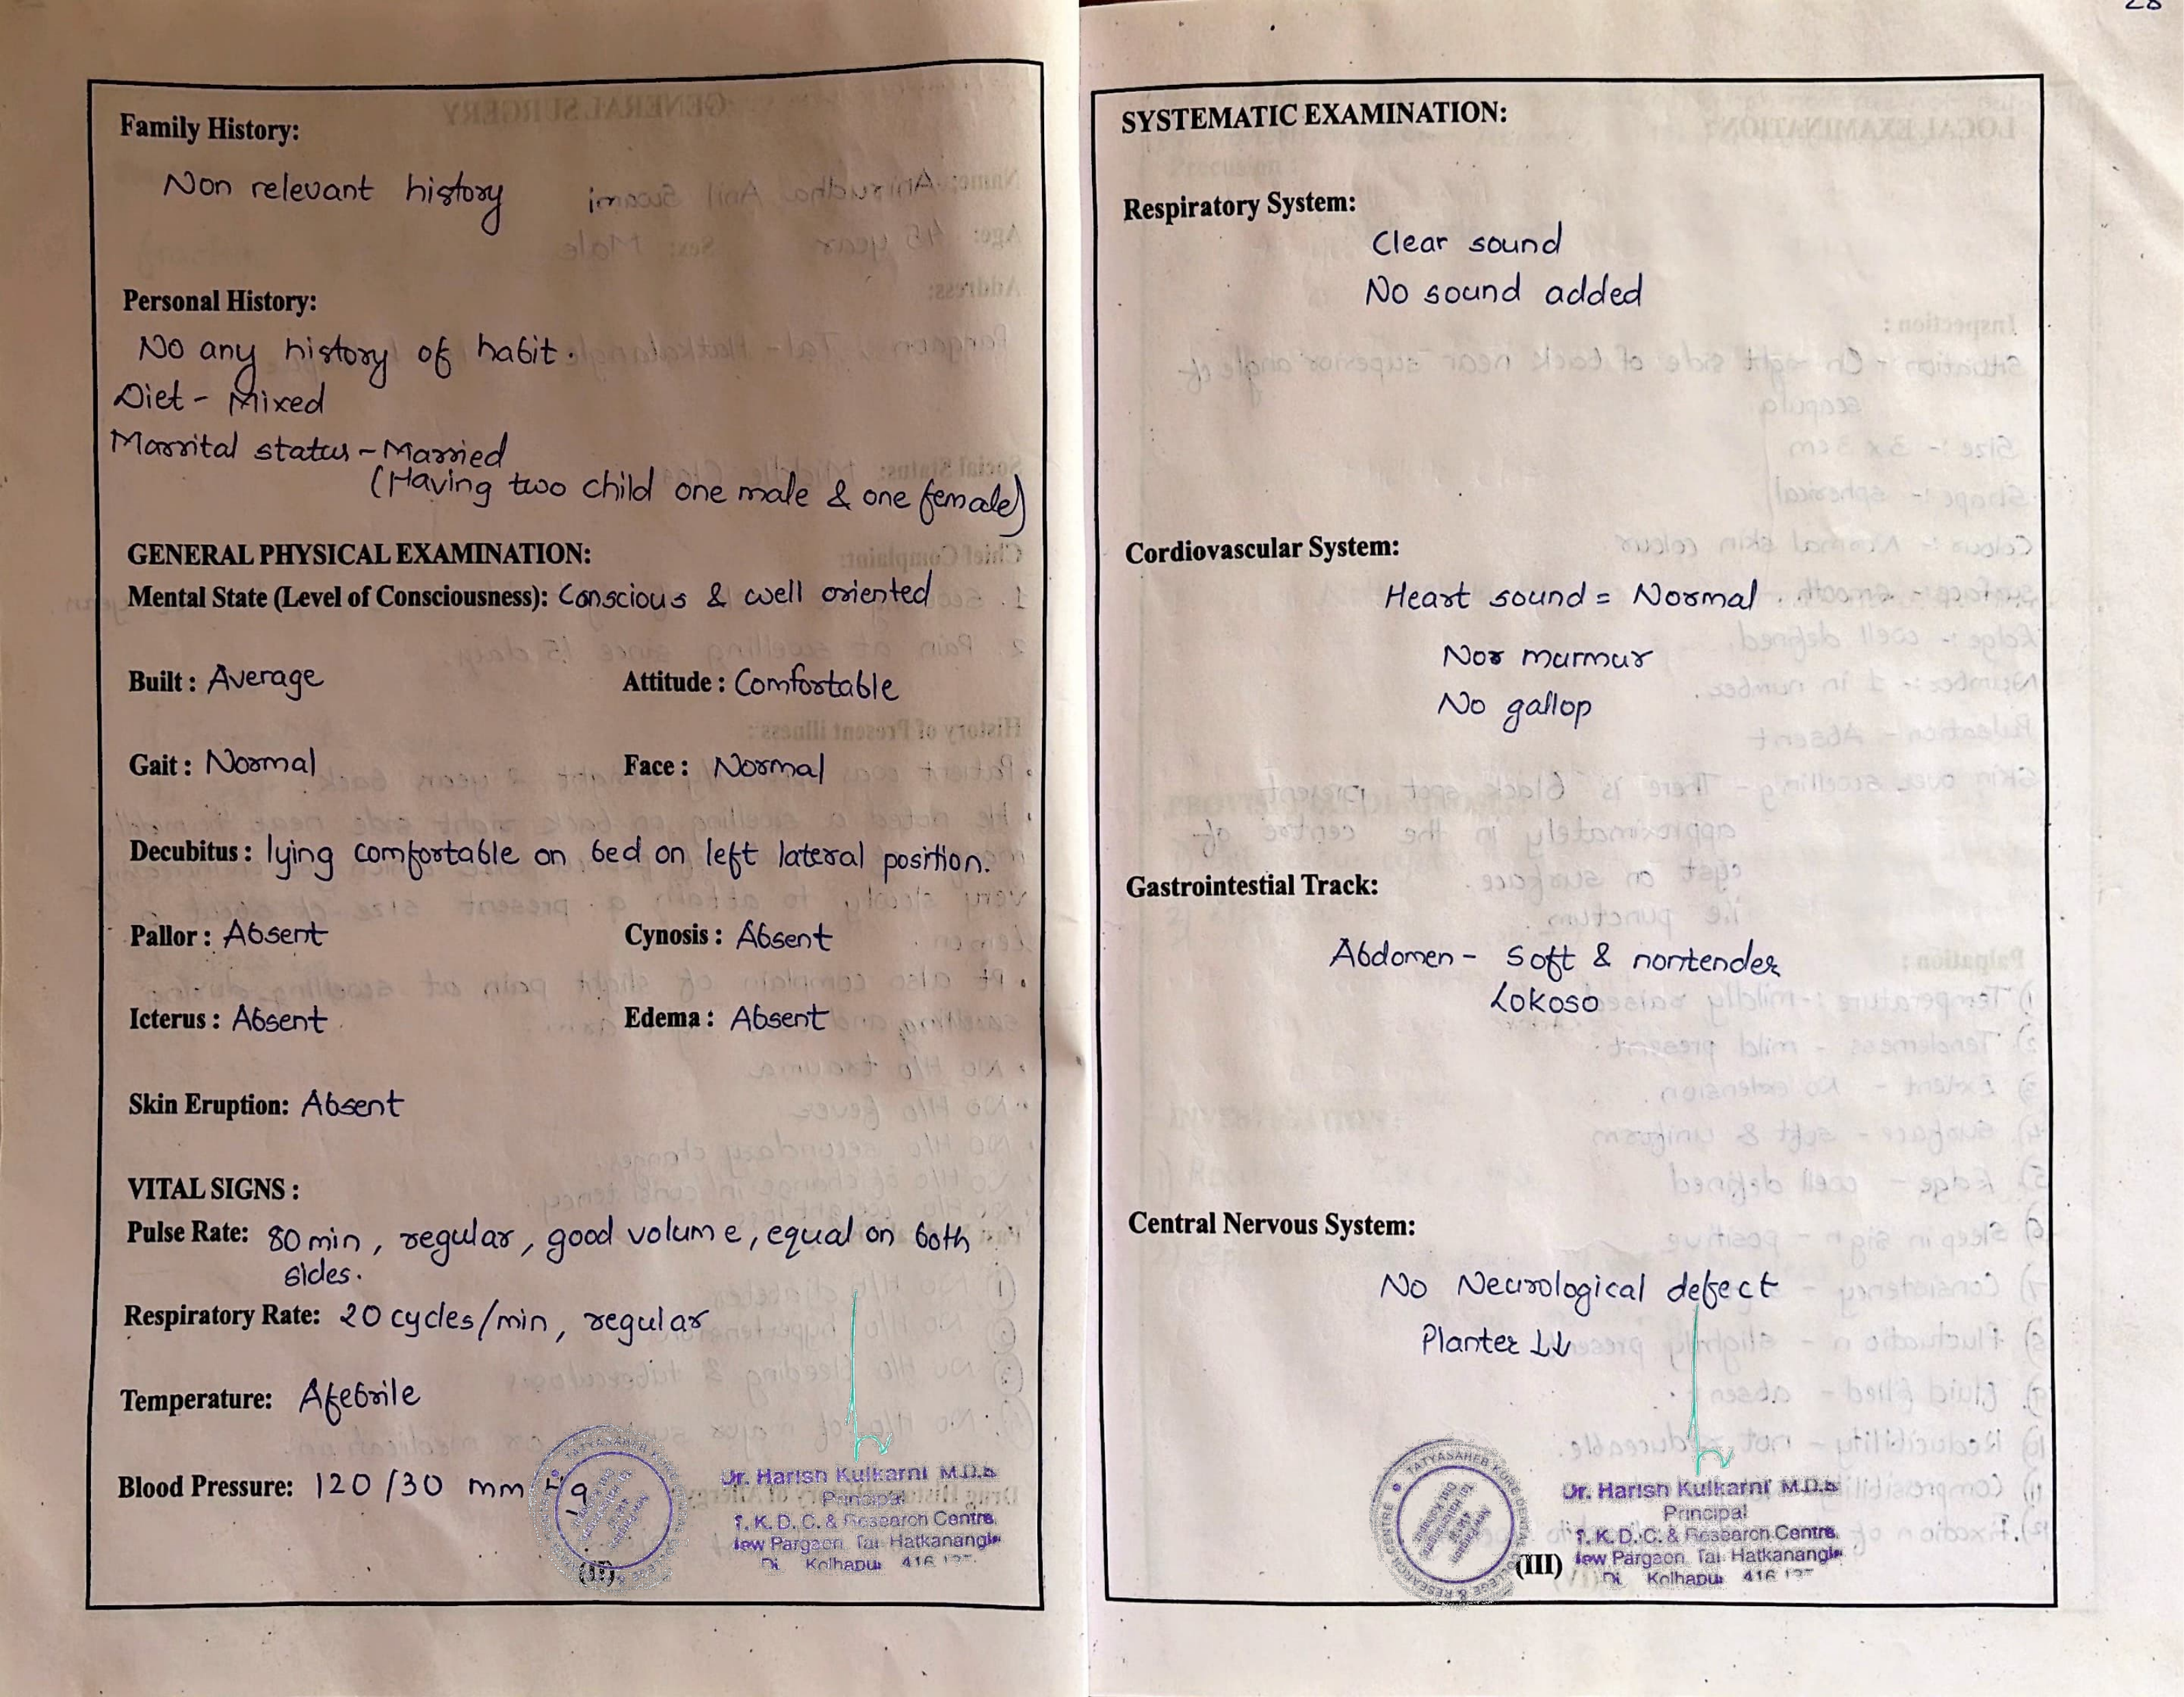 28
Family History:
Non relevant history
Personal History:
No any history of habit.
Diet - Mixed
Marrital status - Married
(Having two child one male & one female)
GENERAL PHYSICAL EXAMINATION:
Mental State (Level of Consciousness): Conscious & well oriented
Built : Average Attitude : Comfortable
Gait : Normal Face : Normal
Decubitus : lying comfortable on bed on left lateral position.
Pallor : Absent Cynosis : Absent
Icterus : Absent Edema : Absent
Skin Eruption: Absent
VITAL SIGNS :
Pulse Rate: 80 min, regular, good volume, equal on both
sides.
Respiratory Rate: 20 cycles/min, regular
Temperature: Afebrile
Blood Pressure: 120/30 mm Hg
Dr. Harish Kulkarni M.D.S
Principal
T. K. D. C. & Research Centre,
New Pargaon, Tal. Hatkanangle
Di. Kolhapur 416 137
(II)
SYSTEMATIC EXAMINATION:
Respiratory System:
Clear sound
No sound added
Cordiovascular System:
Heart sound = Normal
Nor murmur
No gallop
Gastrointestial Track:
Abdomen - Soft & nontender
LOKOSO
Central Nervous System:
No Neurological defect
Planter ↓↓
TATYASAHEB KORE DENTAL COLLEGE & RESEARCH CENTRE
Dr. Harish Kulkarni M.D.S
Principal
T. K. D. C. & Research Centre,
New Pargaon, Tal. Hatkanangle
Di. Kolhapur 416 137
(III)